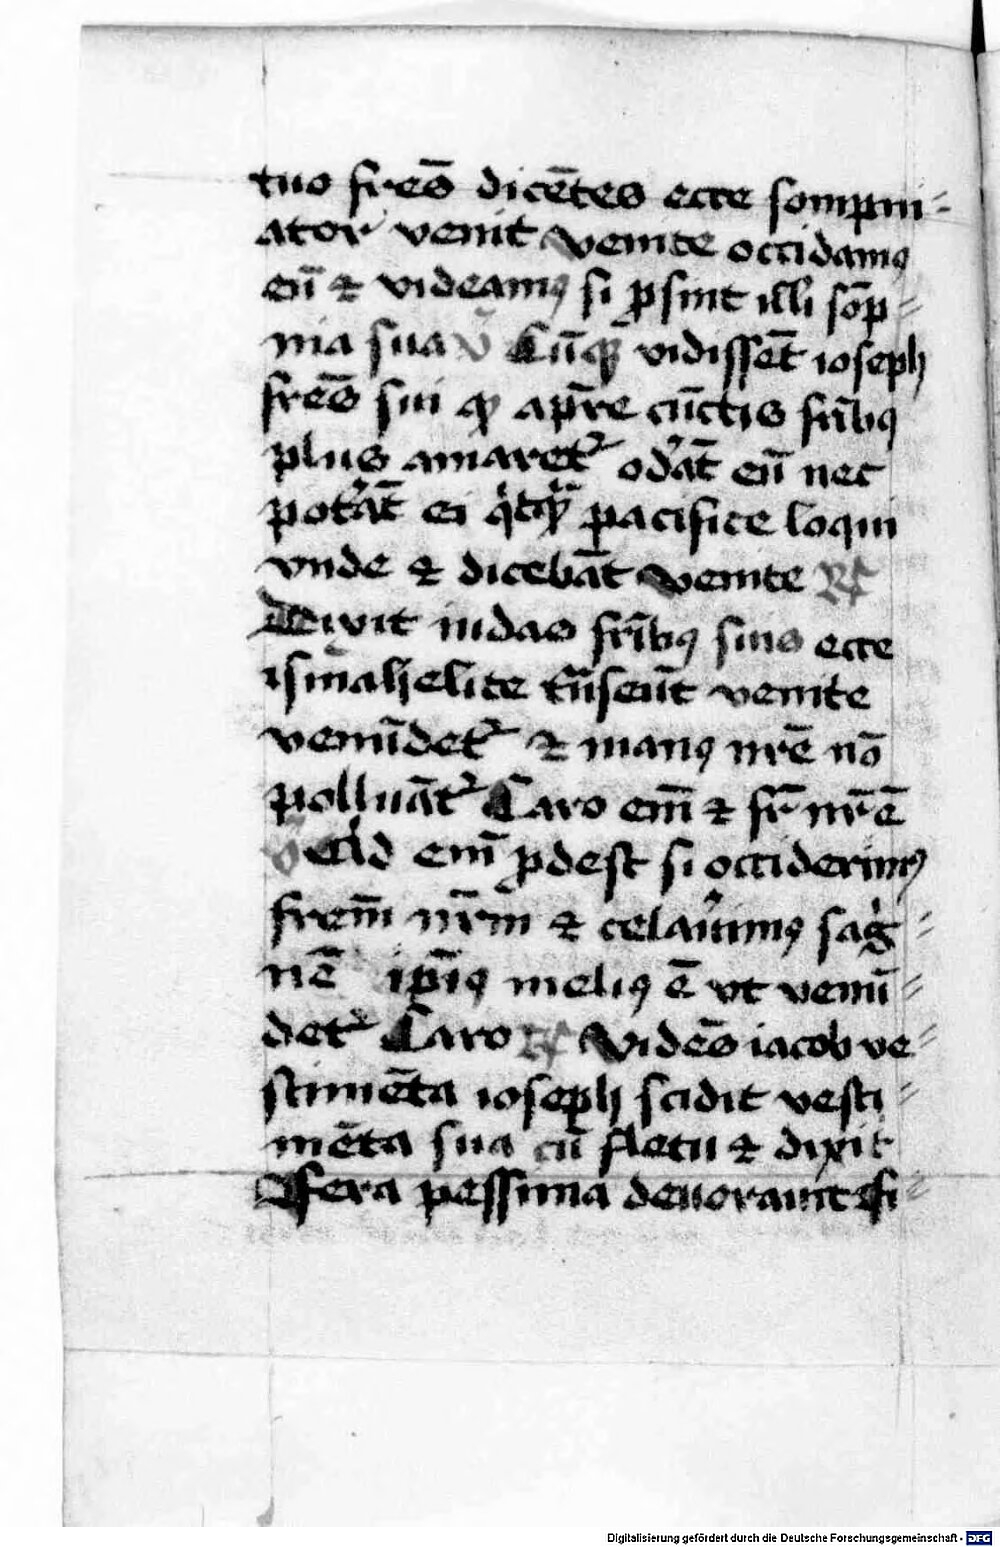 tuo fres̄ dicētes ecce sompni=
ator venit Venite occidamꝰ
eū ⁊ videamꝰ si ꝓsint illi sōp=
nia sua V̄ Cūqꝫ vidissēt ioseph
frēs sui ꝙ a pr̄e cūctis fr̄ibꝰ
plus amaretᷣ odāt eū nec
potāt ei qͥcqᷓ pacifice loqui
vnde ⁊ dicebāt Venite R
Dixit iudas fr̄ibꝰ suis ecce
ismahelite tn̄seūt venite
venūdetᷣ ⁊ manꝰ nrē nō
polluātᷣ Caro em̄ ⁊ fr̄ nr̄ ē
V̄ Qͥd em̄ ꝓdest si occiderimꝰ
frem̄ nr̄m ⁊ celauimꝰ sāg=
nē ip̄iꝰ meliꝰ ē vt venū=
detᷣ Caro R Vidēs iacob ve=
stimēta ioseph scidit vesti=
mēta sua cū fletu ⁊ dixit
Fera pessima deuorauit fi=
Digitalisierung gefördert durch die Deutsche Forschungsgemeinschaft - DFG